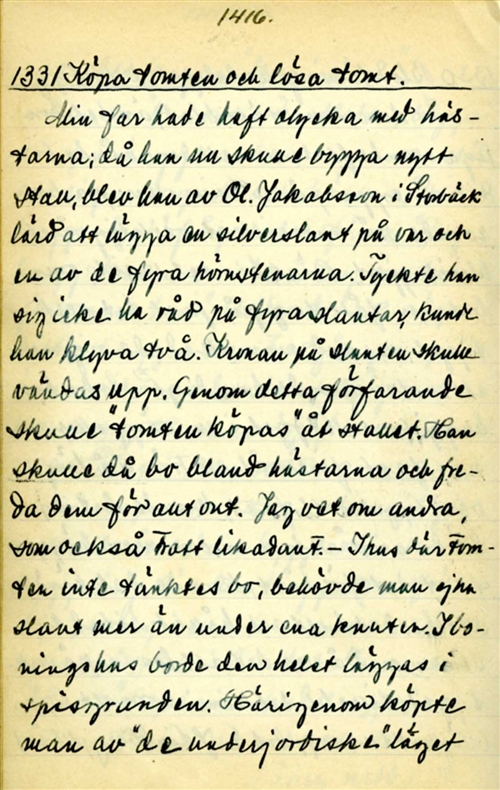 1416.
1331 Köpa tomten och lösa tomt.
Min far hade haft olycka med häs-
tarna; då han nu skulle bygga nytt
stall, blev han av Ol. Jakobsson i Storbäck
lärd att lägga en silverslant på var och
en av de fyra hörnstenarna. Tyckte han
sig icke ha råd på fyra slantar, kunde
han klyva två. Kronan på slanten skulle
vändas upp. Genom detta förfarande
skulle "tomten köpas" åt stallet. Han
skulle då bo bland hästarna och fre-
da dem för allt ont. Jag vet om andra,
som också gjort likadant. – I hus där tom-
ten inte tänktes bo, behövde man ej ha
slant mer än under ena knuten. I bo-
ningshus borde den helst läggas i
spisgrunden. Härigenom köpte
man av "de underjordiske" läget